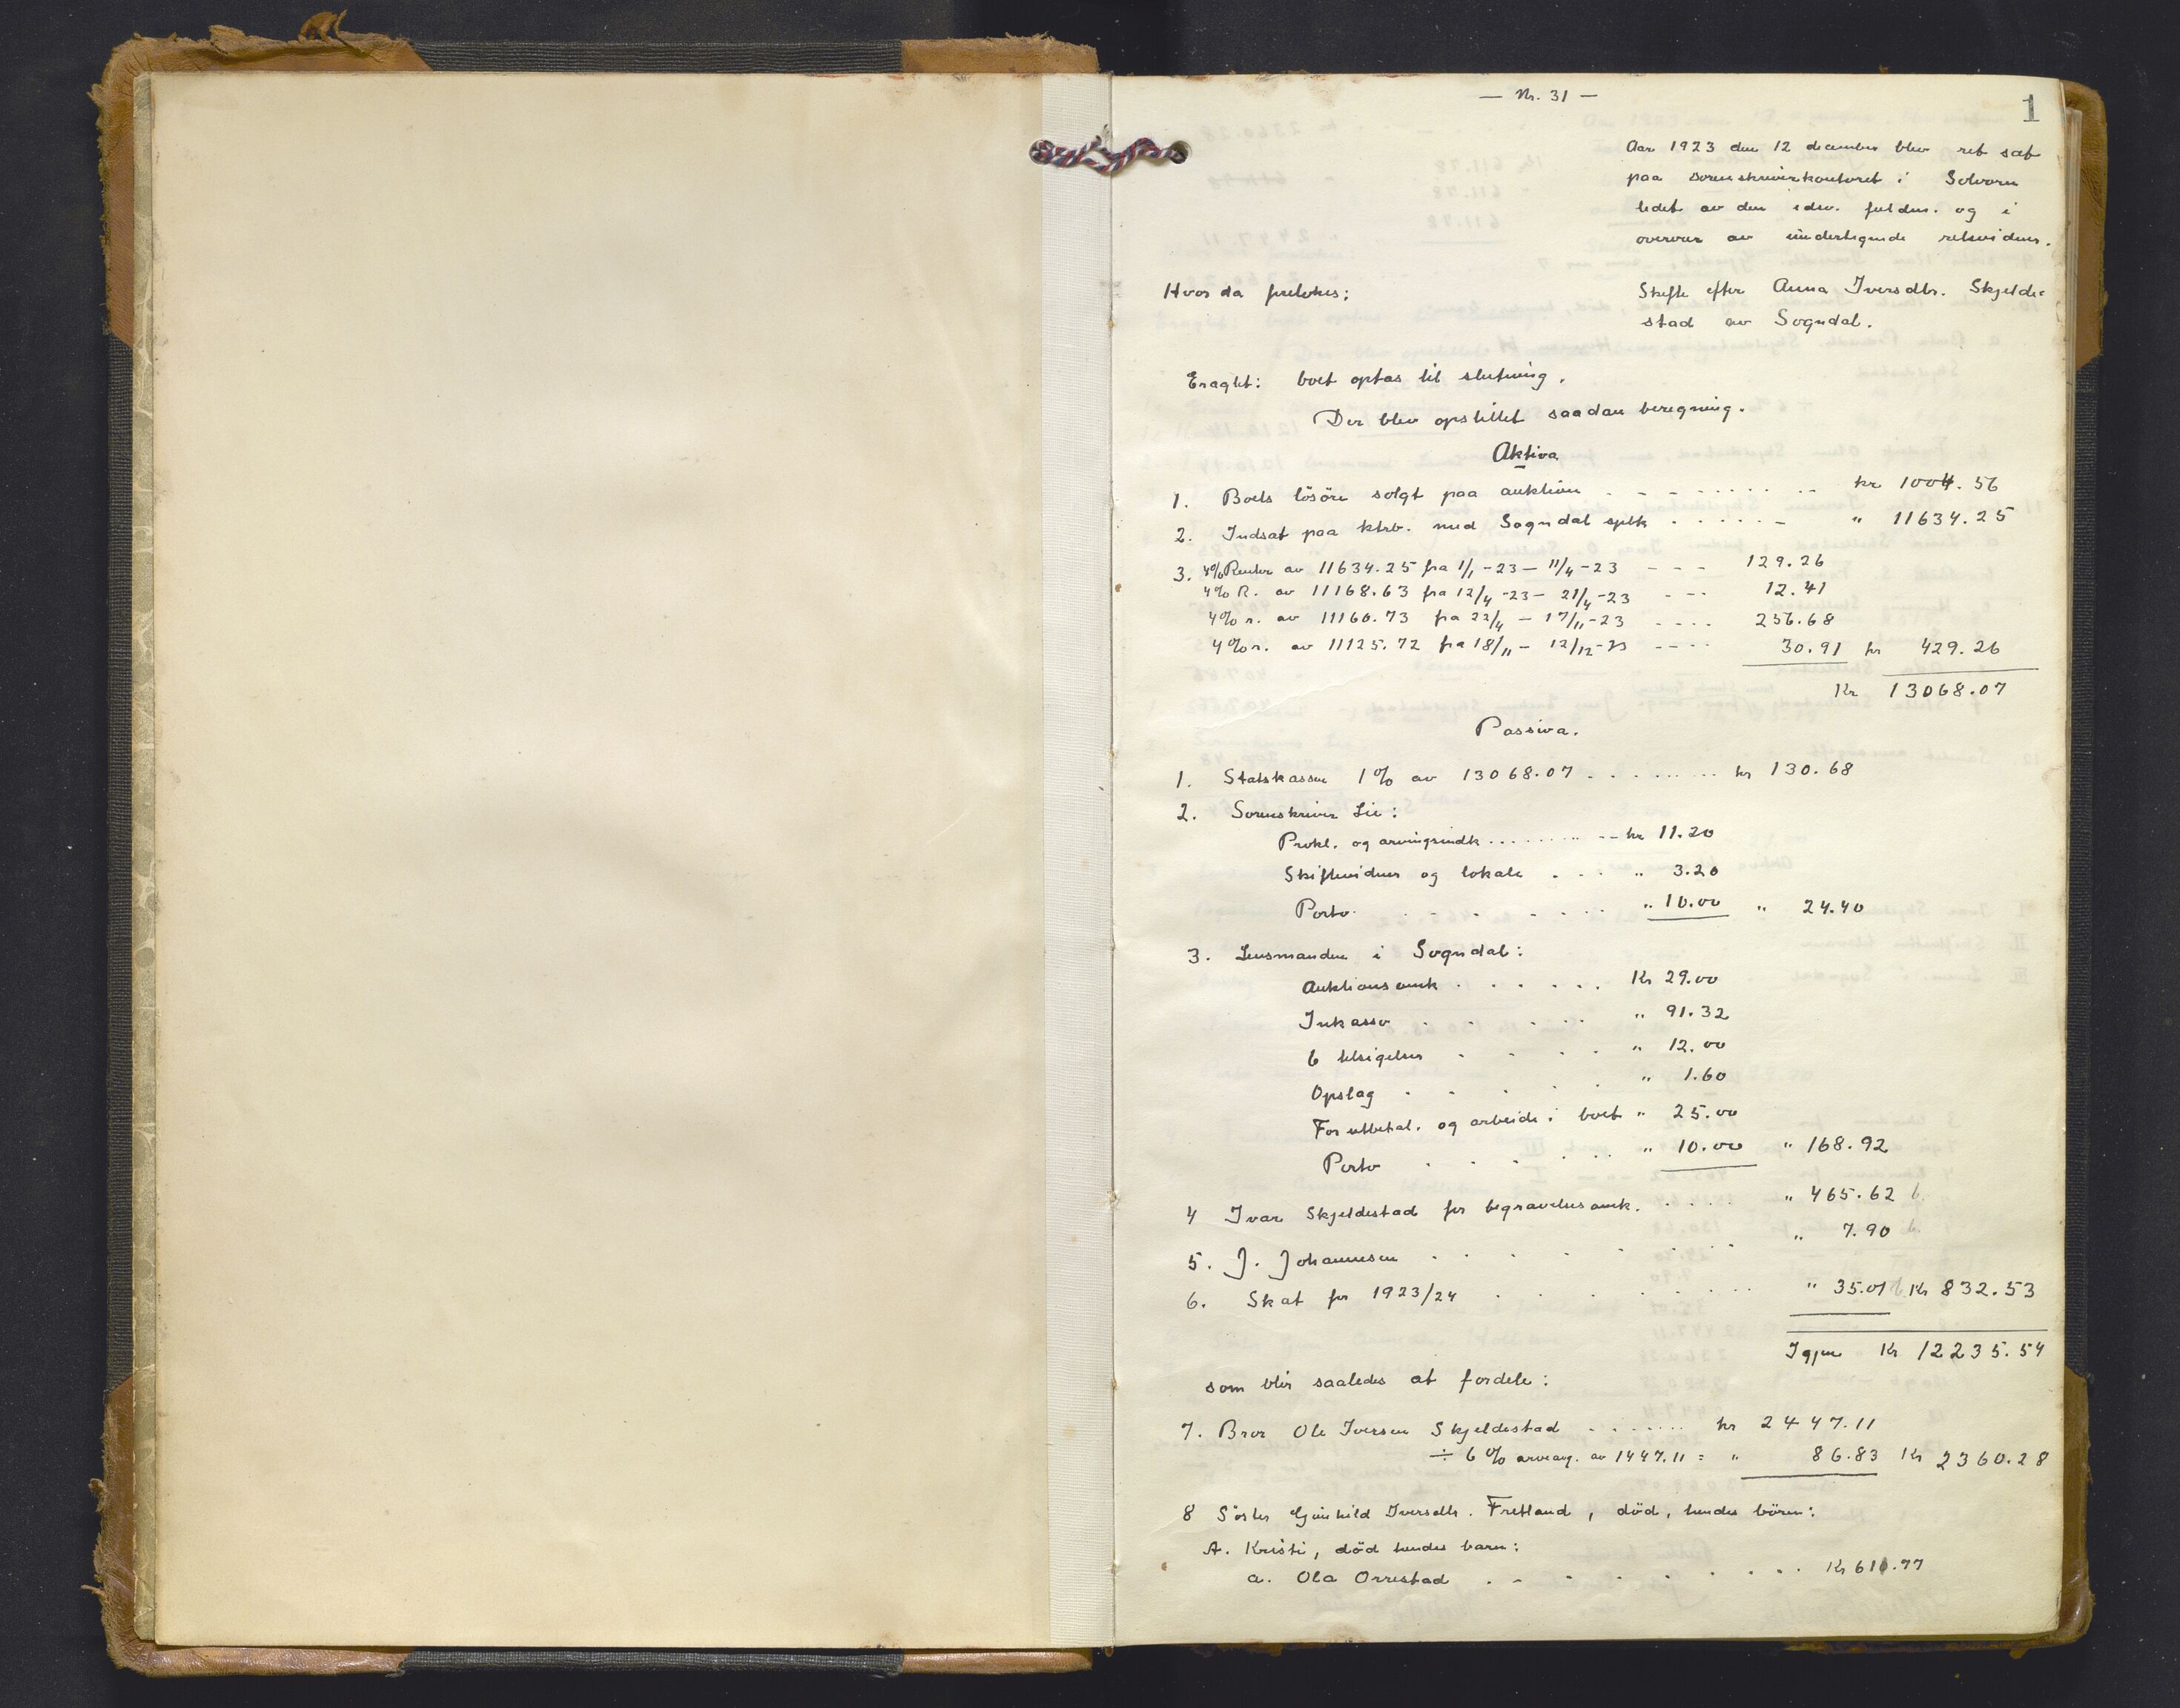 — Nr. 31 —
1
Aar 1923 den 12 december blev ret sat
paa sorenskriverkontoret i Solvorn
ledet av den edsv. fuldm. og i
overvær av undertegnede retsvidner.
Hvor da foretokes:
Skifte efter Anna Iversdtr. Skjelde=
stad av Sogndal.
Eragtet: boet optas til slutning.
Der blev opstillet saadan beregning.
Aktiva
1. Boets løsøre solgt paa auktion . - - . . . . . . . . kr 1004.56
2. Indsat paa ktrb. med Sogndal spbk . . . . . - " 11634.25
3. 4% Renter av 11634.25 fra 1/1 -23 — 11/4 -23 - - - 129.26
4% R. av 11168.63 fra 12/4 -23 — 21/4 -23 - - - 12.41
4% r. av 11160.73 fra 22/4 — 17/11 -23 - - - - 256.68
4% r. av 11125.72 fra 18/11 — 12/12 -23 - - - - 30.91 kr 429.26
Kr 13068.07
Passiva.
1. Statskassen 1% av 13068.07 . . . . . . . . . kr 130.68
2. Sorenskriver Lie:
Prokl. og arvingsindk . . . . . . . . . - - kr 11.20
Skiftevidner og lokale . . . " 3.20
Porto . . . . . . . " 10.00 " 24.40
3. Lensmanden i Sogndal:
Auktionsomk . . . . . . Kr 29.00
Inkasso . . . . . . " 91.32
6 tilsigelser . . . . " 12.00
Opslag . . . . . . " 1.60
For utbetal. og arbeide i boet " 25.00
Porto . . . . . . " 10.00 " 168.92
4 Ivar Skjeldestad for begravelsesomk. . . . . " 465.62 b.
5. J. Johannesen . . . . . . . . " 7.90 b.
6. Skat for 1923/24 . . . . . . . . " 35.01 b. Kr 832.53
Igjen Kr 12235.54
som blir saaledes at fordele:
7. Bror Ole Iversen Skjeldestad . . . . . . . kr 2447.11
÷ 6% arveavg. av 1447.11 = " 86.83 Kr 2360.28
8 Søster Gunhild Iversdtr. Fretland, død, hendes børn:
A. Kristi, død hendes barn:
a. Ola Orrestad . - . . . . . . . . Kr 611.77